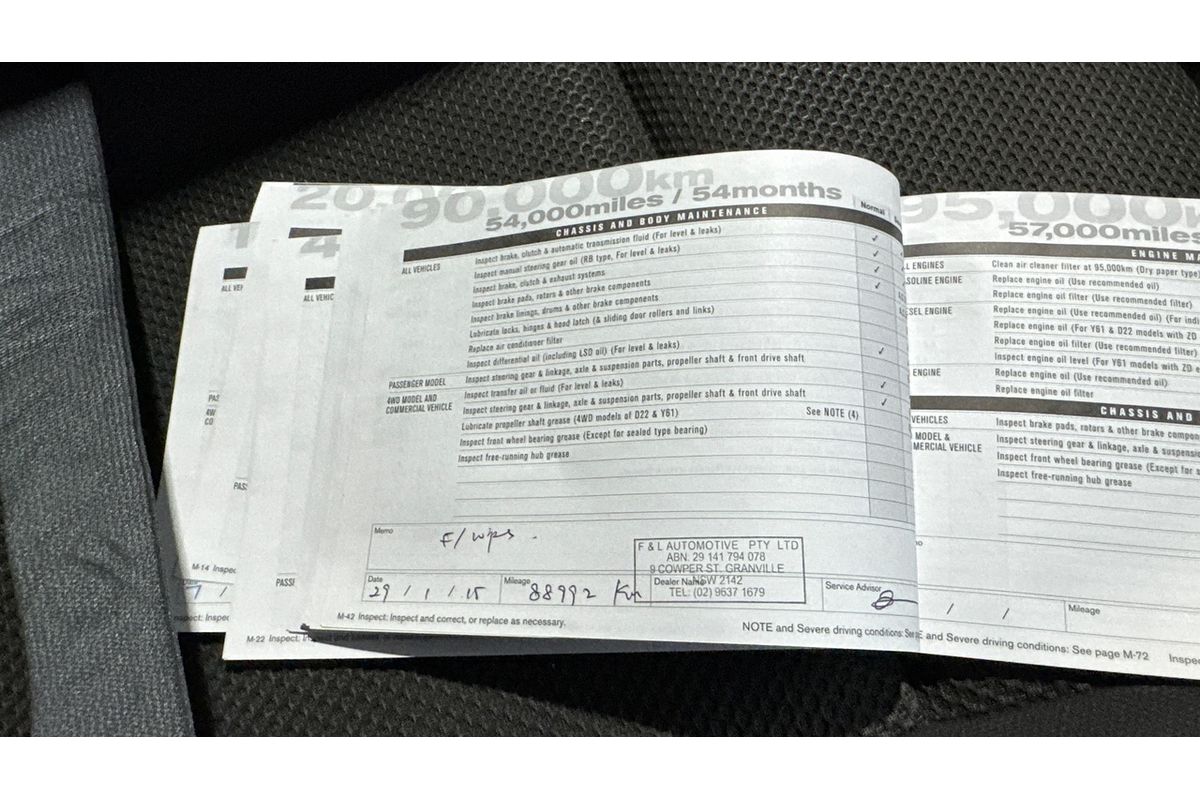 20,0
90,000km
54,000miles / 54months
CHASSIS AND BODY MAINTENANCE
Normal
ALL VEHICLES
Inspect brake, clutch & automatic transmission fluid (For level & leaks) ✓
Inspect manual steering gear oil (RB type, For level & leaks) ✓
Inspect brake, clutch & exhaust systems ✓
Inspect brake pads, rotors & other brake components ✓
Inspect brake linings, drums & other brake components
Lubricate locks, hinges & hood latch (& sliding door rollers and links)
Replace air conditioner filter
Inspect differential oil (including LSD oil) (For level & leaks) ✓
PASSENGER MODEL
Inspect steering gear & linkage, axle & suspension parts, propeller shaft & front drive shaft
4WD MODEL AND COMMERCIAL VEHICLE
Inspect transfer oil or fluid (For level & leaks) ✓
Inspect steering gear & linkage, axle & suspension parts, propeller shaft & front drive shaft ✓
Lubricate propeller shaft grease (4WD models of D22 & Y61) See NOTE (4)
Inspect front wheel bearing grease (Except for sealed type bearing)
Inspect free-running hub grease
Memo
F/wps.
F & L AUTOMOTIVE PTY LTD
ABN. 29 141 794 078
9 COWPER ST. GRANVILLE
NSW 2142
TEL: (02) 9637 1679
Date
29 / 1 / 15
Mileage
88992 Km
Dealer Name
Service Advisor
M-42 Inspect: Inspect and correct, or replace as necessary.
NOTE and Severe driving conditions: See
95,000k
57,000miles
ENGINE MA
L ENGINES
Clean air cleaner filter at 95,000km (Dry paper type)
SOLINE ENGINE
Replace engine oil (Use recommended oil)
Replace engine oil filter (Use recommended filter)
SEL ENGINE
Replace engine oil (Use recommended oil) (For indi
Replace engine oil (For Y61 & D22 models with ZD
Replace engine oil filter (Use recommended filter)
Inspect engine oil level (For Y61 models with ZD e
ENGINE
Replace engine oil (Use recommended oil)
Replace engine oil filter
CHASSIS AND
VEHICLES
Inspect brake pads, rotors & other brake compon
MODEL &
MERCIAL VEHICLE
Inspect steering gear & linkage, axle & suspensio
Inspect front wheel bearing grease (Except for s
Inspect free-running hub grease
/ /
Mileage
E and Severe driving conditions: See page M-72
Inspe
4
ALL VEH
ALL VEHIC
PAS
4W
CO
PAS
M-14 Inspec
Date
PASSI
M-22 Inspect: